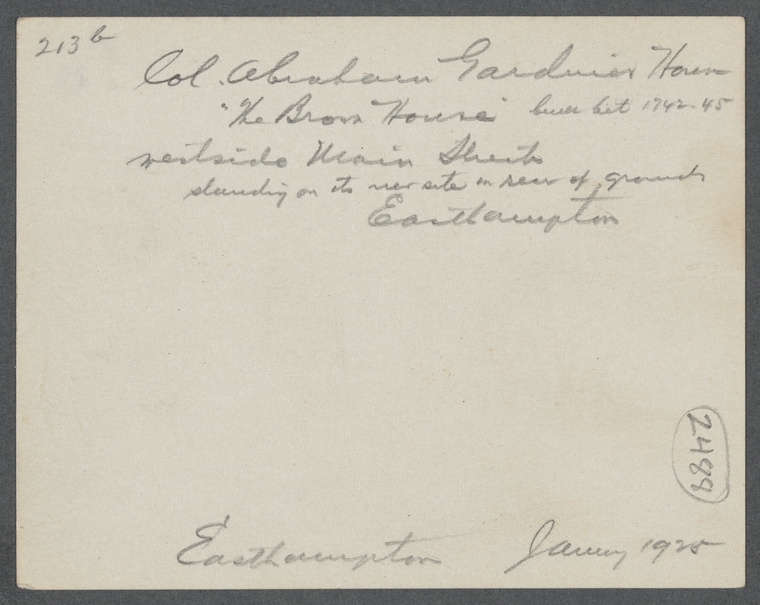 213 b
Col. Abraham Gardiner House
"The Brown House" built bet 1742-45
westside Main Street
standing on its new site in rear of grounds
Easthampton
2488
Easthampton January 1925